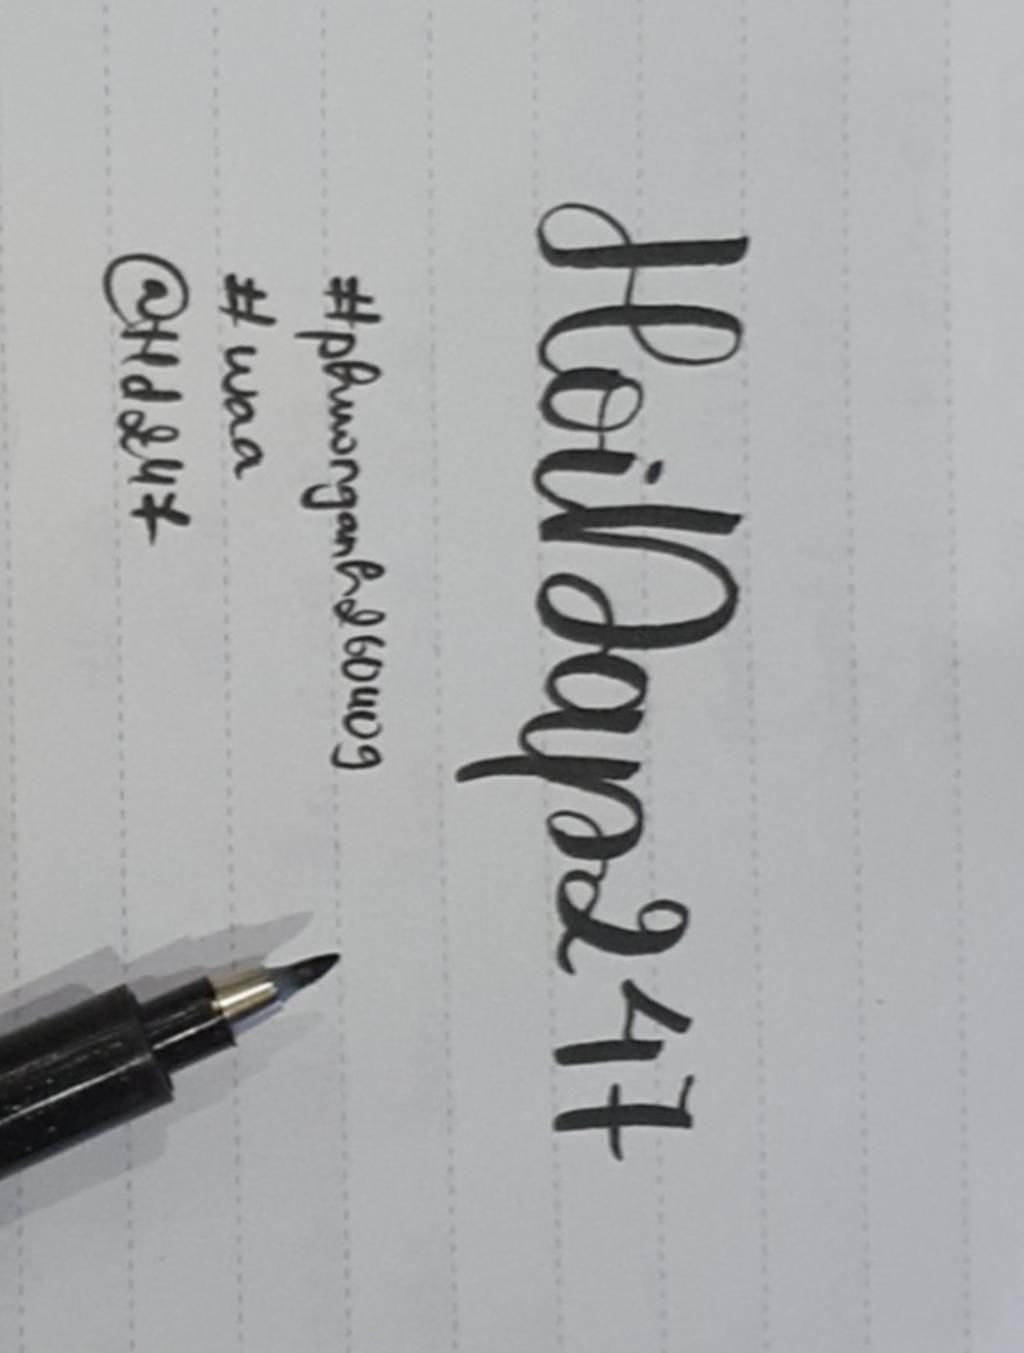 HoiDap247
#phuonganh26009
#waa
@Hd247